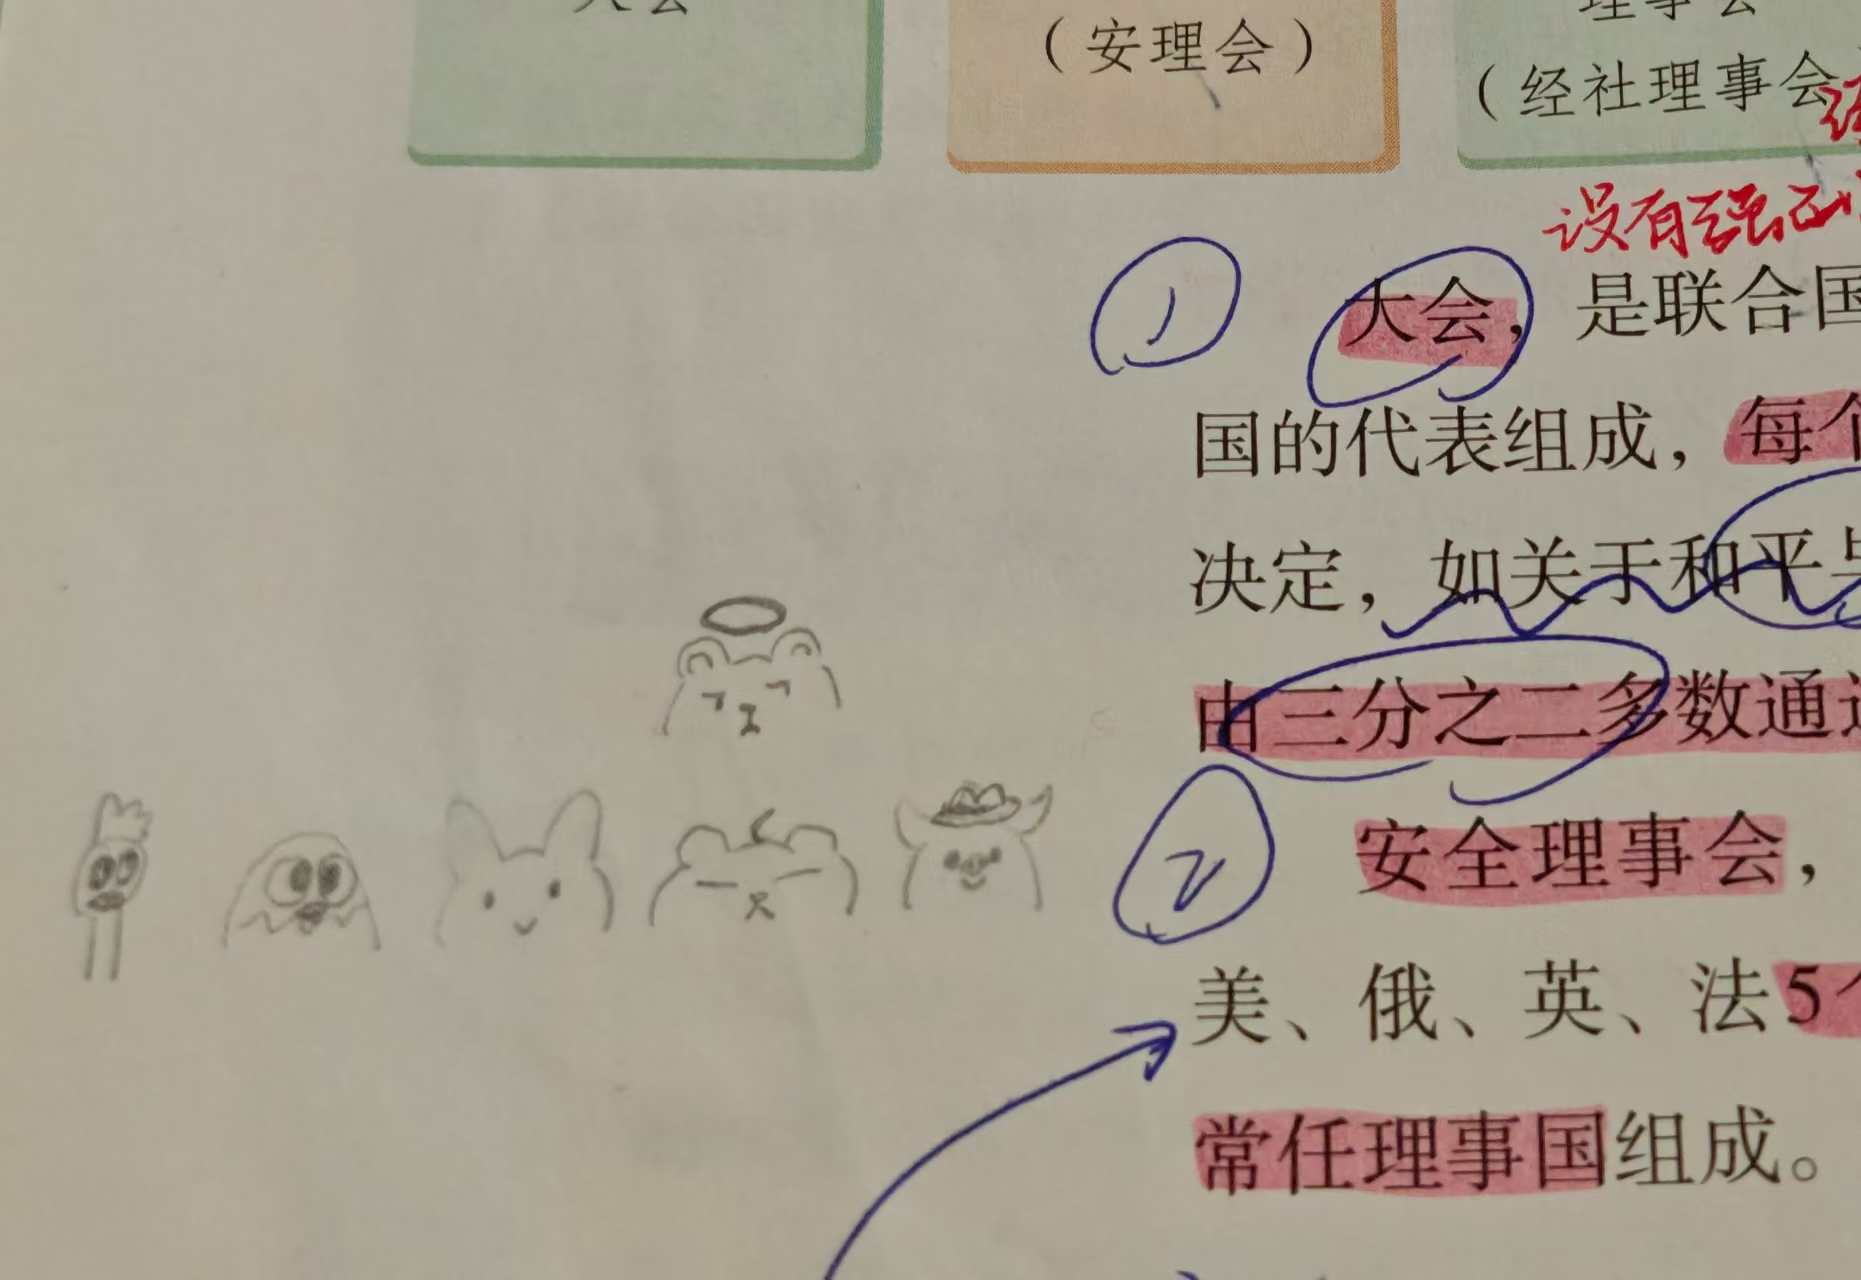 大会
（安理会）
理事会
（经社理事会
没有强
① 大会，是联合国
国的代表组成，每个
决定，如关于和平与
由三分之二多数通过
② 安全理事会，
美、俄、英、法5个
常任理事国组成。